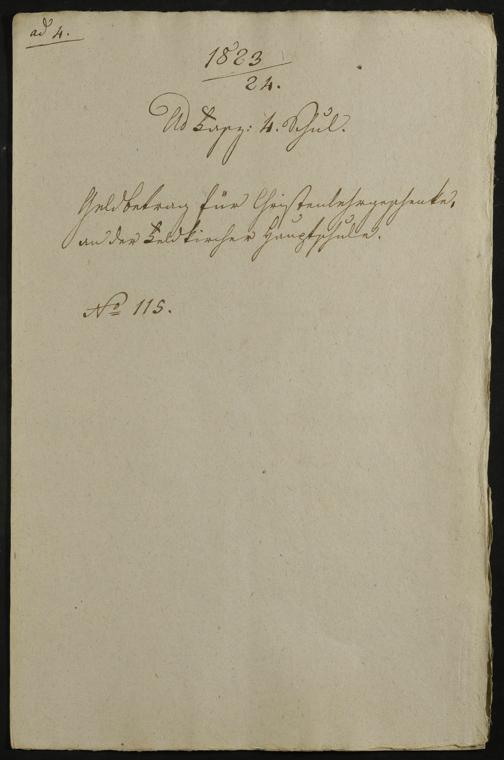 ad 4.
1823
24.
Ad Fasz: 4. Schul.
Geldbetrag für Christenlehrgeschenke,
an der Feldkircher Hauptschule.
No 115.